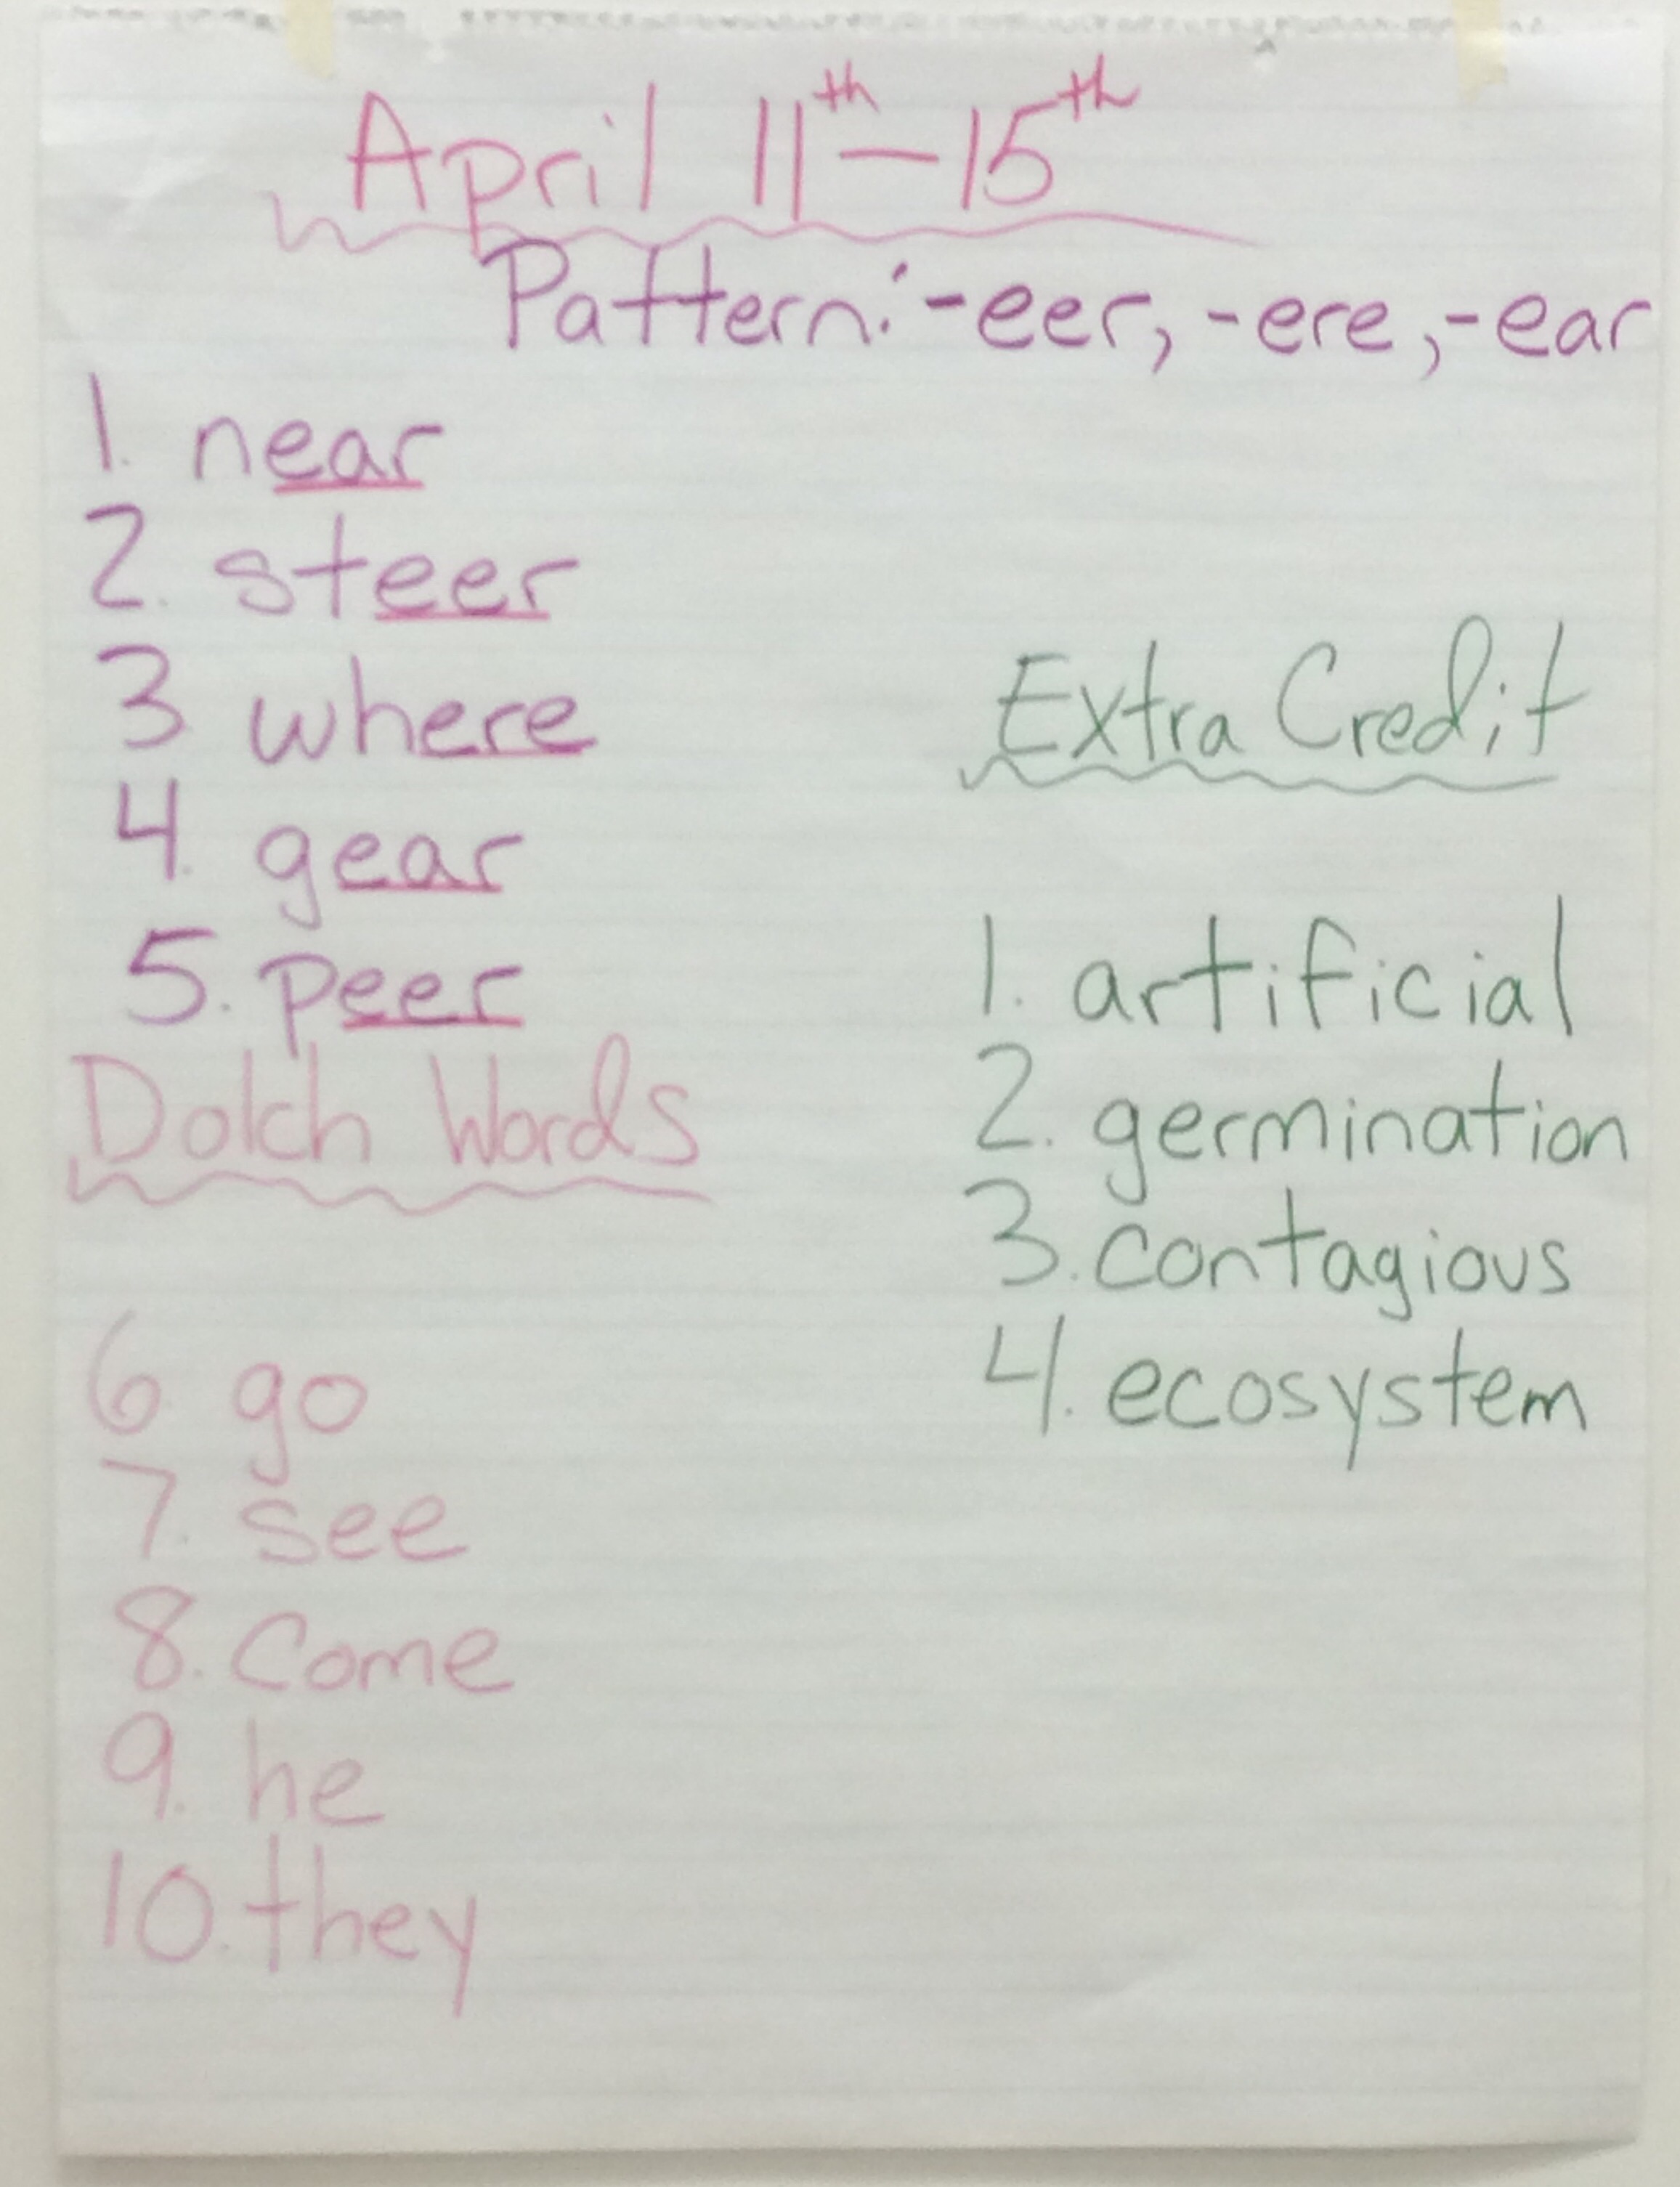 April 11th - 15th
Pattern: -eer, -ere, -ear
1. near
2. steer
3. where
4. gear
5. peer
Dolch Words
6. go
7. see
8. Come
9. he
10. they
Extra Credit
1. artificial
2. germination
3. contagious
4. ecosystem